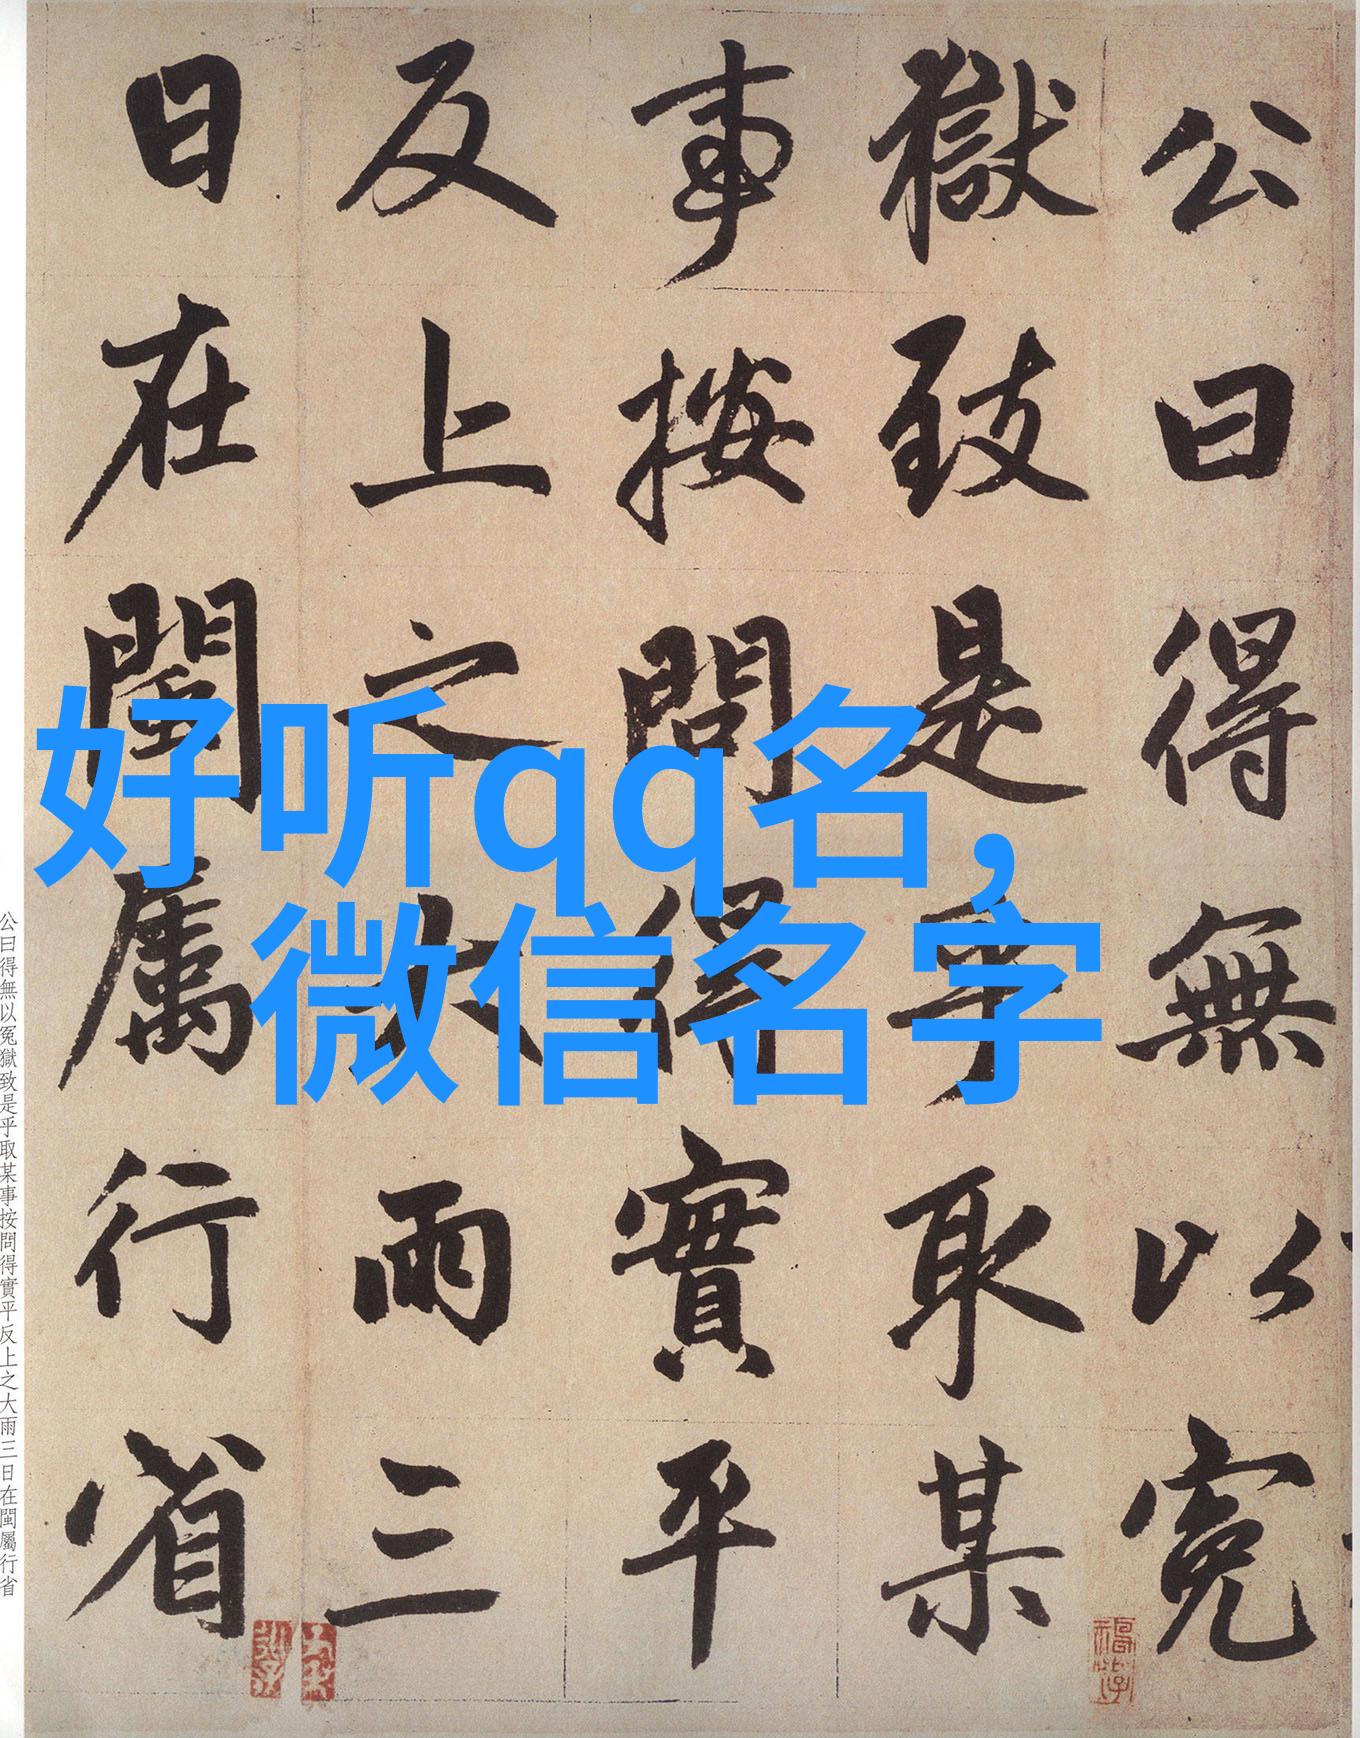 公曰得無以冤
獄致是乎取某
事按問得實平
反上之大雨三
日在閩属行省
好听qq名，
微信名字
公曰得無以冤獄致是乎取某事按問得實平反上之大雨三日在閩屬行省